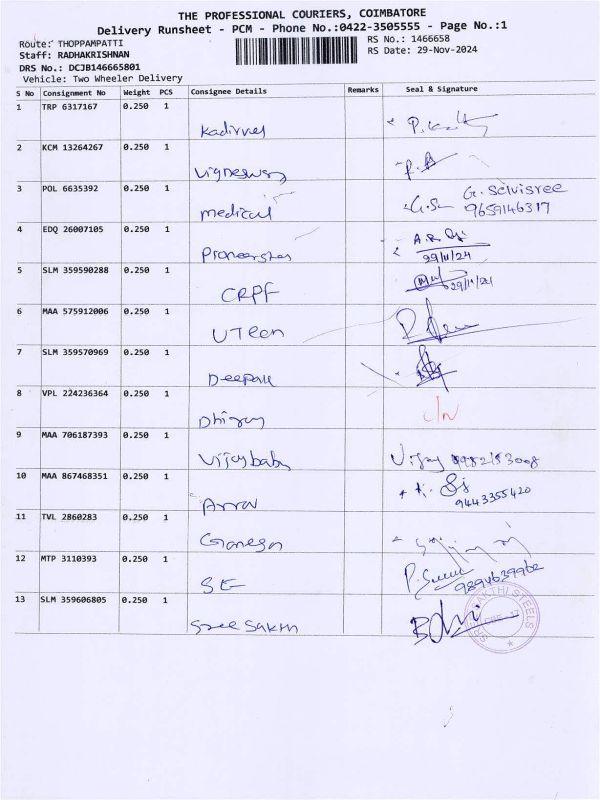 THE PROFESSIONAL COURIERS, COIMBATORE
Delivery Runsheet - PCM - Phone No.:0422-3505555 - Page No.:1
Route: THOPPAMPATTI RS No.: 1466658
Staff: RADHAKRISHNAN RS Date: 29-Nov-2024
DRS No.: DCJB146665801
Vehicle: Two Wheeler Delivery
S No Consignment No Weight PCS Consignee Details Remarks Seal & Signature
1 TRP 6317167 0.250 1
Kadirvel
2 KCM 13264267 0.250 1
3 POL 6635392 0.250 1 G. Selvisree
medical G.S 9659146317
4 EDQ 26007105 0.250 1
29/11/24
5 SLM 359590288 0.250 1 29/11/24
CRPF
6 MAA 575912006 0.250 1
UTeen
7 SLM 359570969 0.250 1
Deepak
8 VPL 224236364 0.250 1
Dhiraj
9 MAA 706187393 0.250 1
Vijaybabu Vijay
10 MAA 867468351 0.250 1
9443355420
11 TVL 2860283 0.250 1
Ganesan
12 MTP 3110393 0.250 1
SE 9894639962
13 SLM 359606805 0.250 1
Sree Sakthi
SAKTHI STEELS